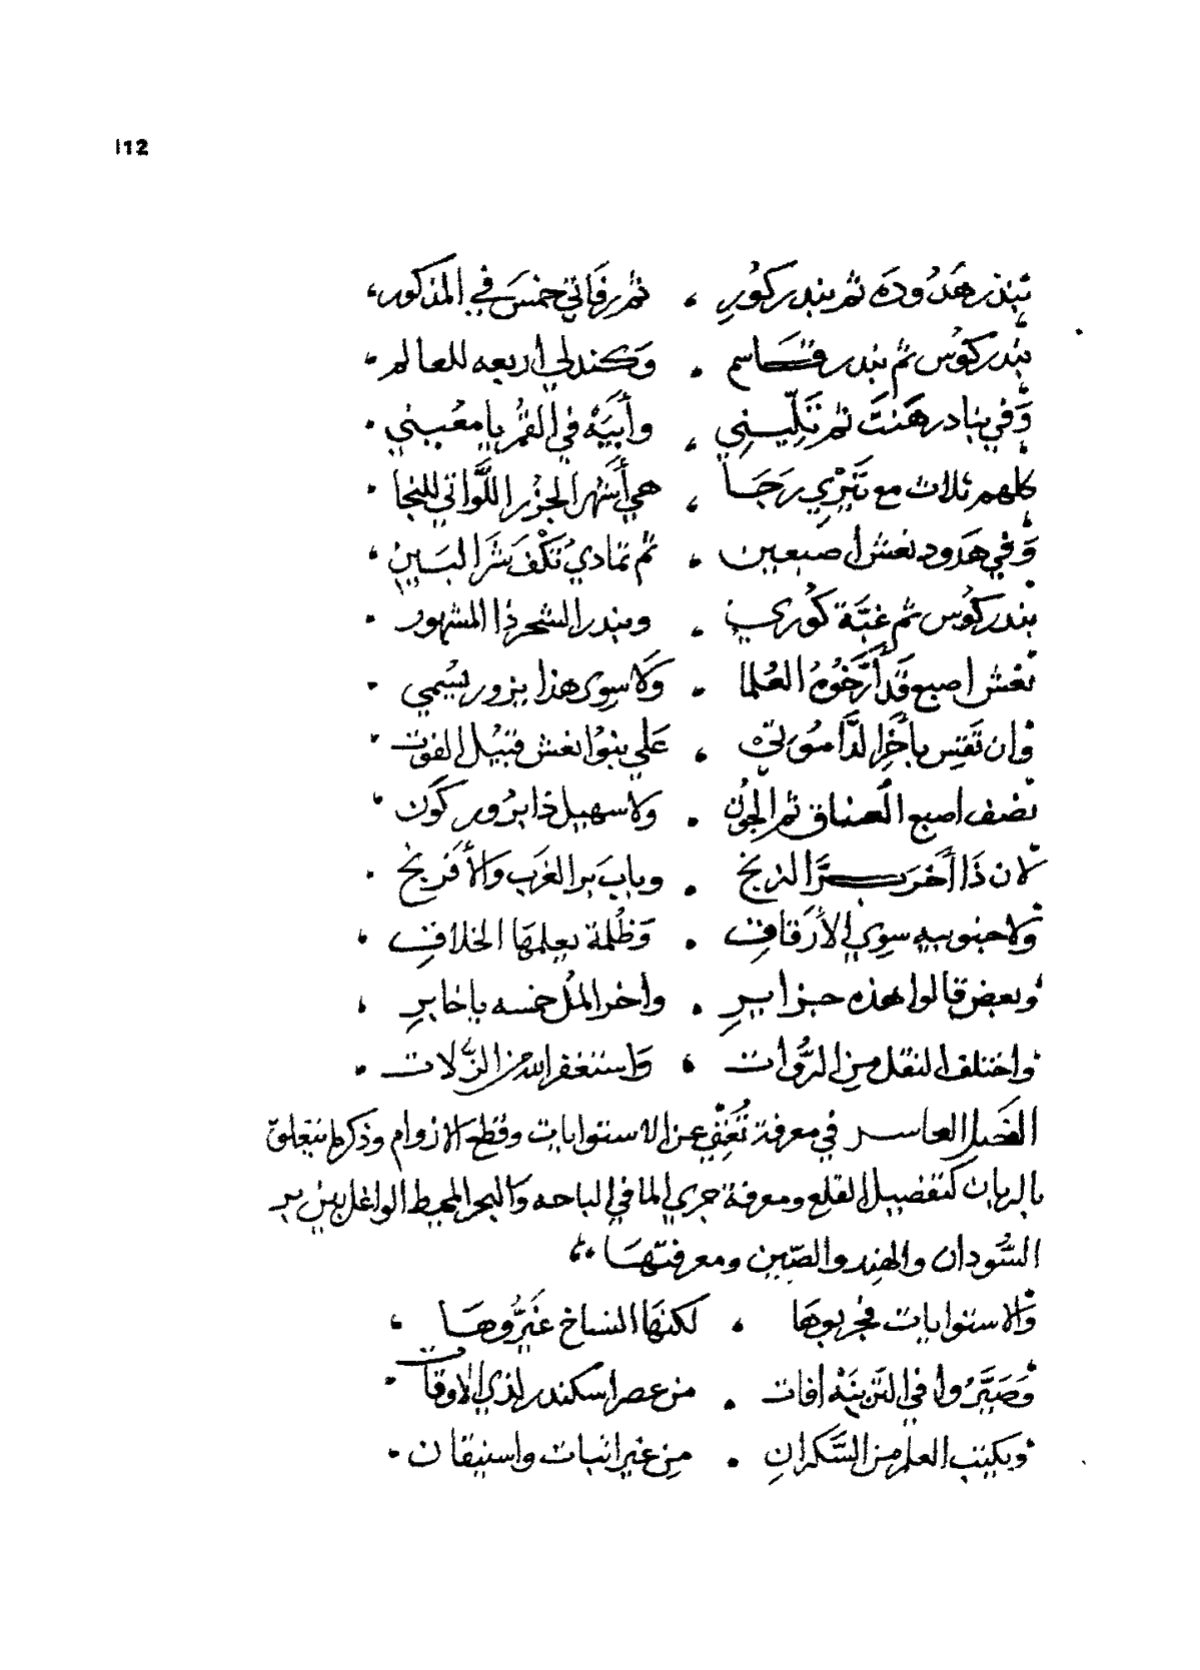 112
بندر هَدُودَه ثم بندر كَوُرِ ، ثم رفَاتي خمسَ في المذكور،
بندر كوُس ثم بندر قَاسم . وَكندلي اربعه للعالم .
وَفي بنادر هَنتَ ثم تَلِّيسِني ، وأَبيَهْ في القمُر يا معُيني .
كلهم ثلاث مع تَيْزِي رَجَا ، هي أَشهر الجزُر اللَّوَاتي للنجا .
وَفي هدود نعش اصبعين . ثم تمادي تَكْفَ شَرَ البَينِ ،
بندر كوُس ثم غبَّة كَوُري . وبندر الشحر ذا المشهور .
نعش اصبع قَد أَرَّخُوهُ العُلما . وَلا سِوى هذا يزور يسُمي .
وان تَقِس بأَخِر الدَّامُوتيْ ، عَلي بنوُا نعش قبَيُل الفوت .
نصف اصبع العناق ثم الجوُن . ولا سهيل ذا بزُور كَون .
لان ذَا أَخر بَرَّ الزنج . وبابَ بر الغَرب وَالأَفرَنج .
وَلا جنوبيه سِوي الأَرَقافِ . وَظُلمة يعلمهَا الخلافِ .
وبعض قالوا هذه جزايرِ . واخر المُل خمسه يا خابرِ .
واختلف النقل مِن الرُّوَات . وَاستغفر الله من الزلَّات .
الفصل العاشر في معرفة تُغني عن الاستوايات وقطع الازوام وذكر ما يتعلق
بالربان كتفضيل القلع ومعرفة جري الما في الباحه وَالبحر المحيط الواغل بين بر
السُّودان والهند والصّين ومعرفتهَا
وَالاستوايات فجربوهَا ، لكنهَا النساخ غَيَّروُهَا ،
وَصَيَّرُوا في التربيَهْ افات . من عصر اسكندر لذي الاوقات .
ويكتب العلم من السَّكرانِ . مِن غير اثبات واستيقان .